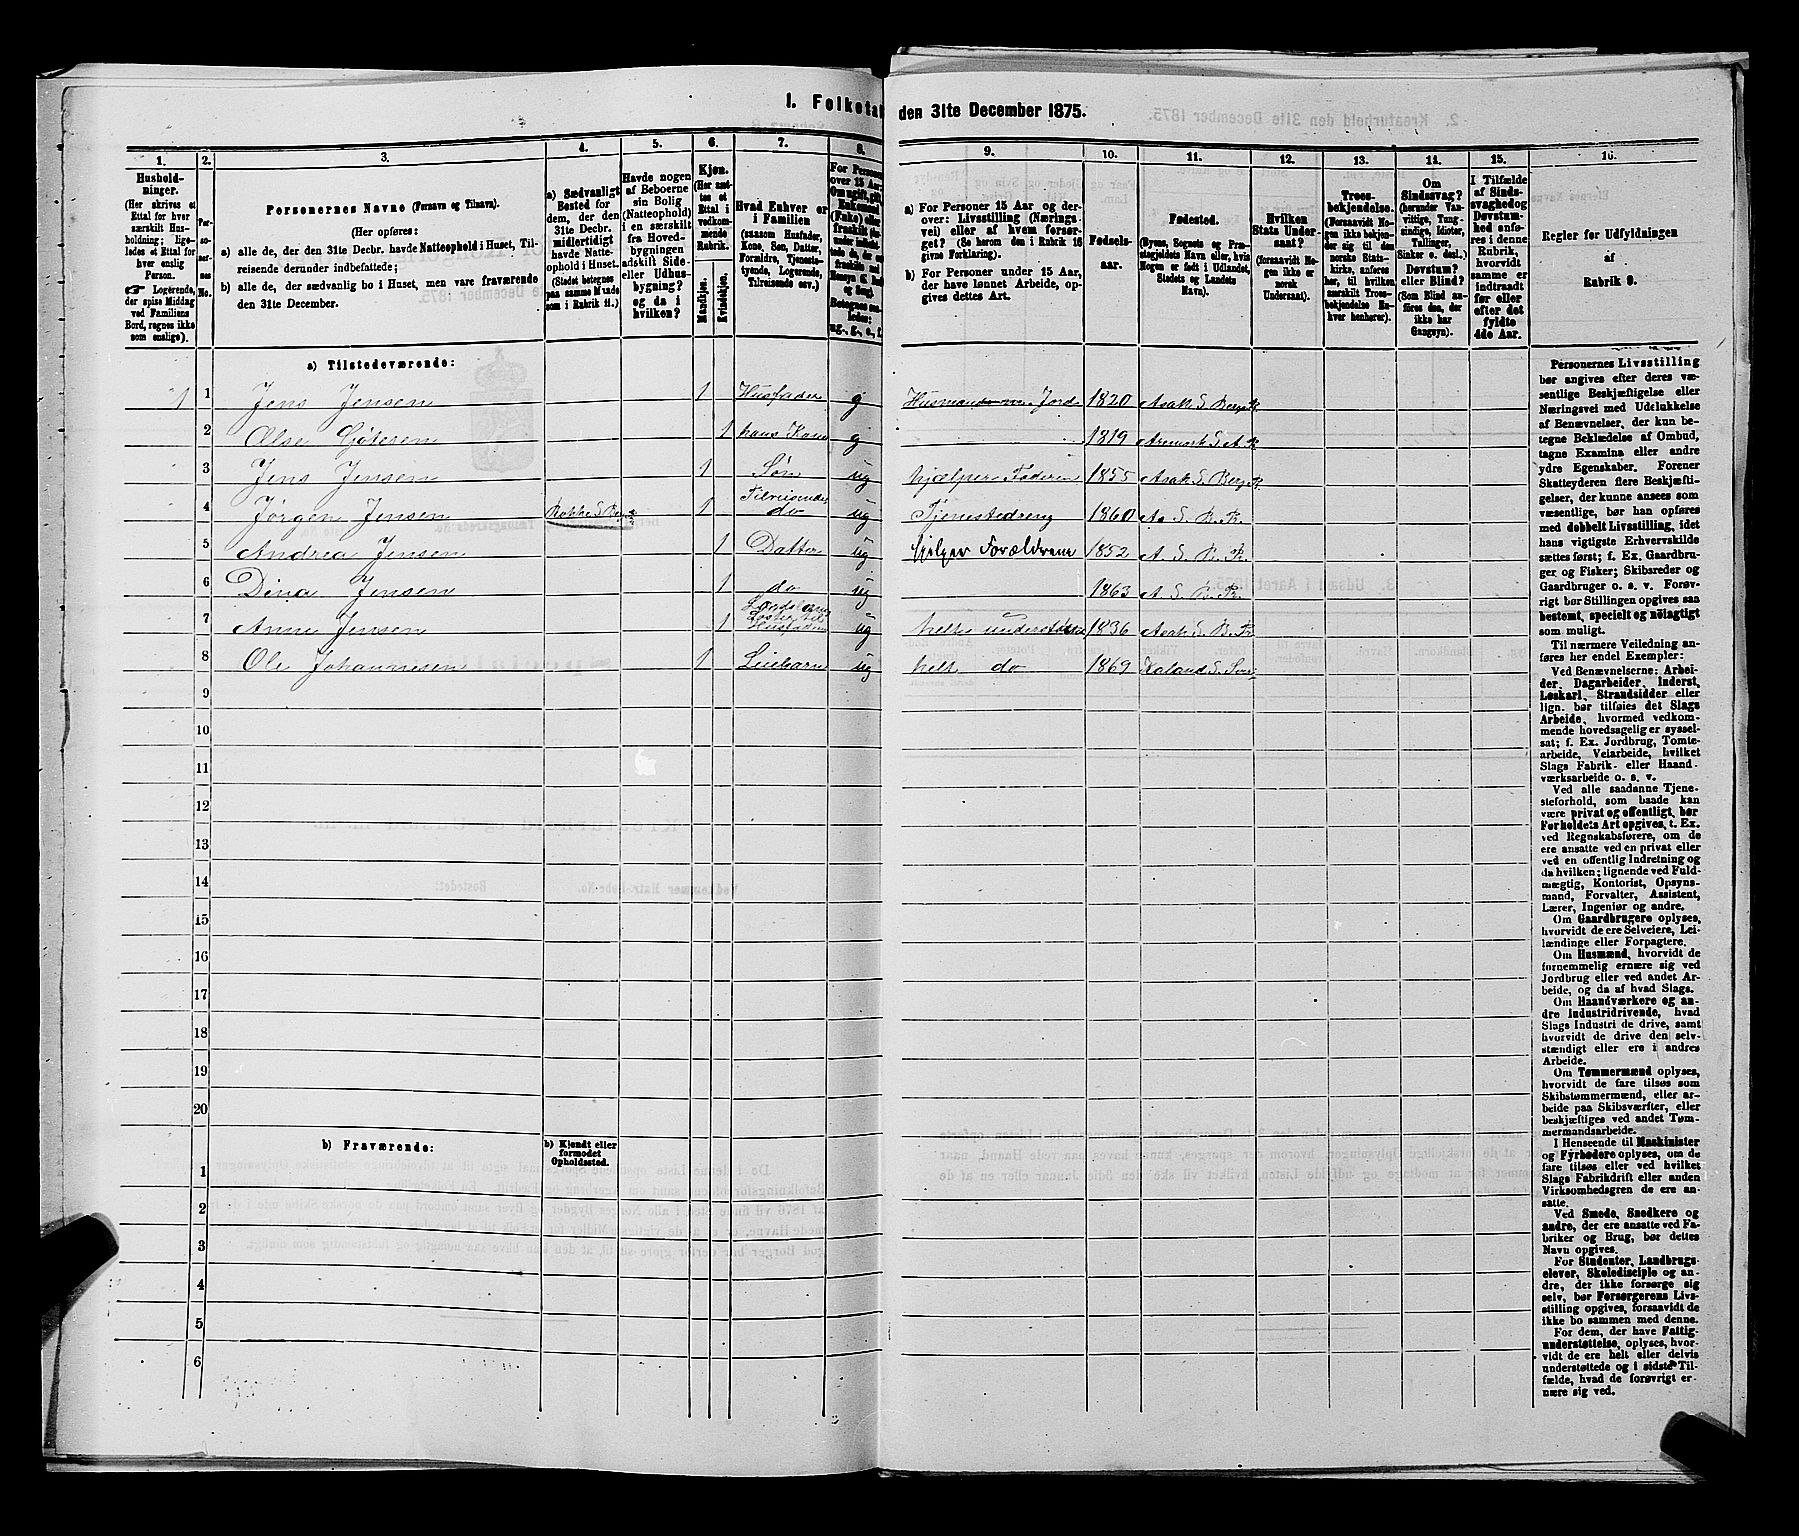 1. Folketal den 31te December 1875.
1. 2. 3. 4. 5. 6. 7. 8. 9. 10. 11. 12. 13. 14. 15. 16.
Hushold-
ninger.
(Her skrives et
Ettal for hver
særskilt Hus-
holdning; lige-
ledes et Ettal for
hver enslig
Person.
☞ Logerende,
der spise Middag
ved Familiens
Bord, regnes ikke
som enslige).
Per-
so-
ner-
nes
No.
Personernes Navne (Fornavn og Tilnavn).
(Her opføres:
a) alle de, der den 31te Decbr. havde Natteophold i Huset, Til-
reisende derunder indbefattede;
b) alle de, der sædvanlig bo i Huset, men vare fraværende
den 31te December.
a) Sædvanligt
Bosted for
dem, der den
31te Decbr.
midlertidigt
havde Natte-
ophold i Huset.
(Stedet betegnes
paa samme Maade
som i Rubrik 11.)
Havde nogen
af Beboerne
sin Bolig
(Natteophold)
i en særskilt
fra Hoved-
bygningen
adskilt Side-
eller Udhus-
bygning?
og da i
hvilken?
Kjøn.
(Her sæt-
tes et
Ettal i
vedkom-
mende
Rubrik.
Mandkjøn.
Kvindekjøn.
Hvad Enhver er
i Familien
(saasom Husfader,
Kone, Søn, Datter,
Forældre, Tjeneste-
tyende, Logerende,
Tilreisende osv.)
a) For Personer 15 Aar og der-
over: Livsstilling (Nærings-
vei) eller af hvem forsør-
get? (Se herom den i Rubrik 16
givne Forklaring).
b) For Personer under 15 Aar,
der have lønnet Arbeide, op-
gives dettes Art.
Fødsels-
aar.
Fødested.
(Byens, Sognets og Præ-
stegjeldets Navn eller, hvis
Nogen er født i Udlandet,
Stedets og Landets
Navn).
Hvilken
Stats Under-
saat?
(forsaavidt No-
gen ikke er
norsk
Undersaat).
Troes-
bekjendelse.
(Forsaavidt No-
gen ikke bekjen-
der sig til den
norske Stats-
kirke, anføres
her, til hvilken
særskilt Troes-
bekjendelse En-
hver henhører).
Om
Sindssvag?
(herunder Van-
vittige, Tung-
sindige, Idioter,
Tullinger,
Sinker o. desl.)
Døvstum?
eller Blind?
(Som Blind an-
føres den, der
ikke har
Gangsyn).
I Tilfælde
af Sinds-
svaghed og
Døvstum-
hed anfø-
res i denne
Rubrik,
hvorvidt
samme er
indtraadt
før eller
efter det
fyldte
4de Aar.
Regler for Udfyldningen
af
Rubrik 9.
a) Tilstedeværende:
1 1 Jens Jensen 1 Husfader g Husmand m. Jord 1820 Asak S. Berg P.
2 Else Gjøtesen 1 hans Kone g 1819 Aremark S. A. P.
3 Jens Jensen 1 Søn ug hjælper Faderen 1855 Asak S. Berg P.
4 Jørgen Jensen Rokke S. Berg 1 Tilreisende do ug Tjenestedreng 1860 As S. B. P.
5 Andrea Jensen 1 Datter ug hjelper Forældrene 1852 A S. B. P.
6 Dina Jensen 1 do ug 1863 A. S. B. P.
7 Anne Jensen 1 Søster til Husfaderen ug helt understøttet 1836 Asak S. B. P.
8 Ole Johannesen 1 ug helt do 1869
9
10
11
12
13
14
15
16
17
18
19
20
b) Fraværende:
b) Kjendt eller
formodet
Opholdssted.
1
2
3
4
5
6
Personernes Livsstilling
bør angives efter deres væ-
sentlige Beskjæftigelse eller
Næringsvei med Udelukkelse
af Benævnelser, der kun be-
tegne Beklædelse af Ombud,
tagne Examina eller andre
ydre Egenskaber. Forener
Skatteyderen flere Beskjæfti-
gelser, der kunne ansees som
væsentlige, bør han opføres
med dobbelt Livsstilling, idet
hans vigtigste Erhvervskilde
sættes først; f. Ex. Gaardbru-
ger og Fisker; Skibsreder og
Gaardbruger o. s. v. Forøv-
rigt bør Stillingen opgives saa
bestemt, specielt og nøiagtigt
som muligt.
Til nærmere Veiledning an-
føres her endel Exempler:
Ved Benævnelserne: Arbei-
der, Dagarbeider, Inderst,
Løskarl, Strandsidder eller
lign. bør tilføies det Slags
Arbeide, hvormed vedkom-
mende hovedsagelig er syssel-
sat; f. Ex. Jordbrug, Tomte-
arbeide, Veiarbeide, hvilket
Slags Fabrik- eller Haand-
værksarbeide o. s. v.
Ved alle saadanne Tjene-
steforhold, som baade kan
være privat og offentligt, bør
Forholdets Art opgives, t. Ex.
ved Regnskabsførere, om de
ere ansatte ved en privat eller
ved en offentlig Indretning og
da hvilken; lignende ved Fuld-
mægtig, Kontorist, Opsyns-
mand, Forvalter, Assistent,
Lærer, Ingeniør og andre.
Om Gaardbrugere oplyses,
hvorvidt de ere Selveiere, Lei-
lændinge eller Forpagtere.
Om Husmænd, hvorvidt de
fornemmelig ernære sig ved
Jordbrug eller ved andet Ar-
beide, og da af hvad Slags.
Om Haandværkere og an-
dre Industridrivende, hvad
Slags Industri de drive, samt
hvorvidt de drive den selv-
stændigt eller ere i andres
Arbeide.
Om Tømmermænd oplyses,
hvorvidt de fare tilsøs som
Skibstømmermænd, eller ar-
beide paa Skibsværfter, eller
beskjæftiges ved andet Tøm-
mermandsarbeide.
I Henseende til Maskinister
og Fyrbødere oplyses, om de
fare tilsøs eller ved hvilket
Slags Fabrikdrift eller anden
Virksomhedsgren de ere an-
satte.
Ved Smede, Snedkere og
andre, der ere ansatte ved Fa-
briker og Brug, bør dettes
Navn opgives.
For Studenter, Landbrugs-
elever, Skoledisciple og an-
dre, der ikke forsørge sig
selv, bør Forsørgerens Livs-
stilling opgives, forsaavidt de
ikke bo sammen med denne.
For dem, der have Fattig-
understøttelse, oplyses, hvor-
vidt de ere helt eller delvis
understøttede og i sidste Til-
fælde, hvad de forøvrigt er-
nære sig ved.